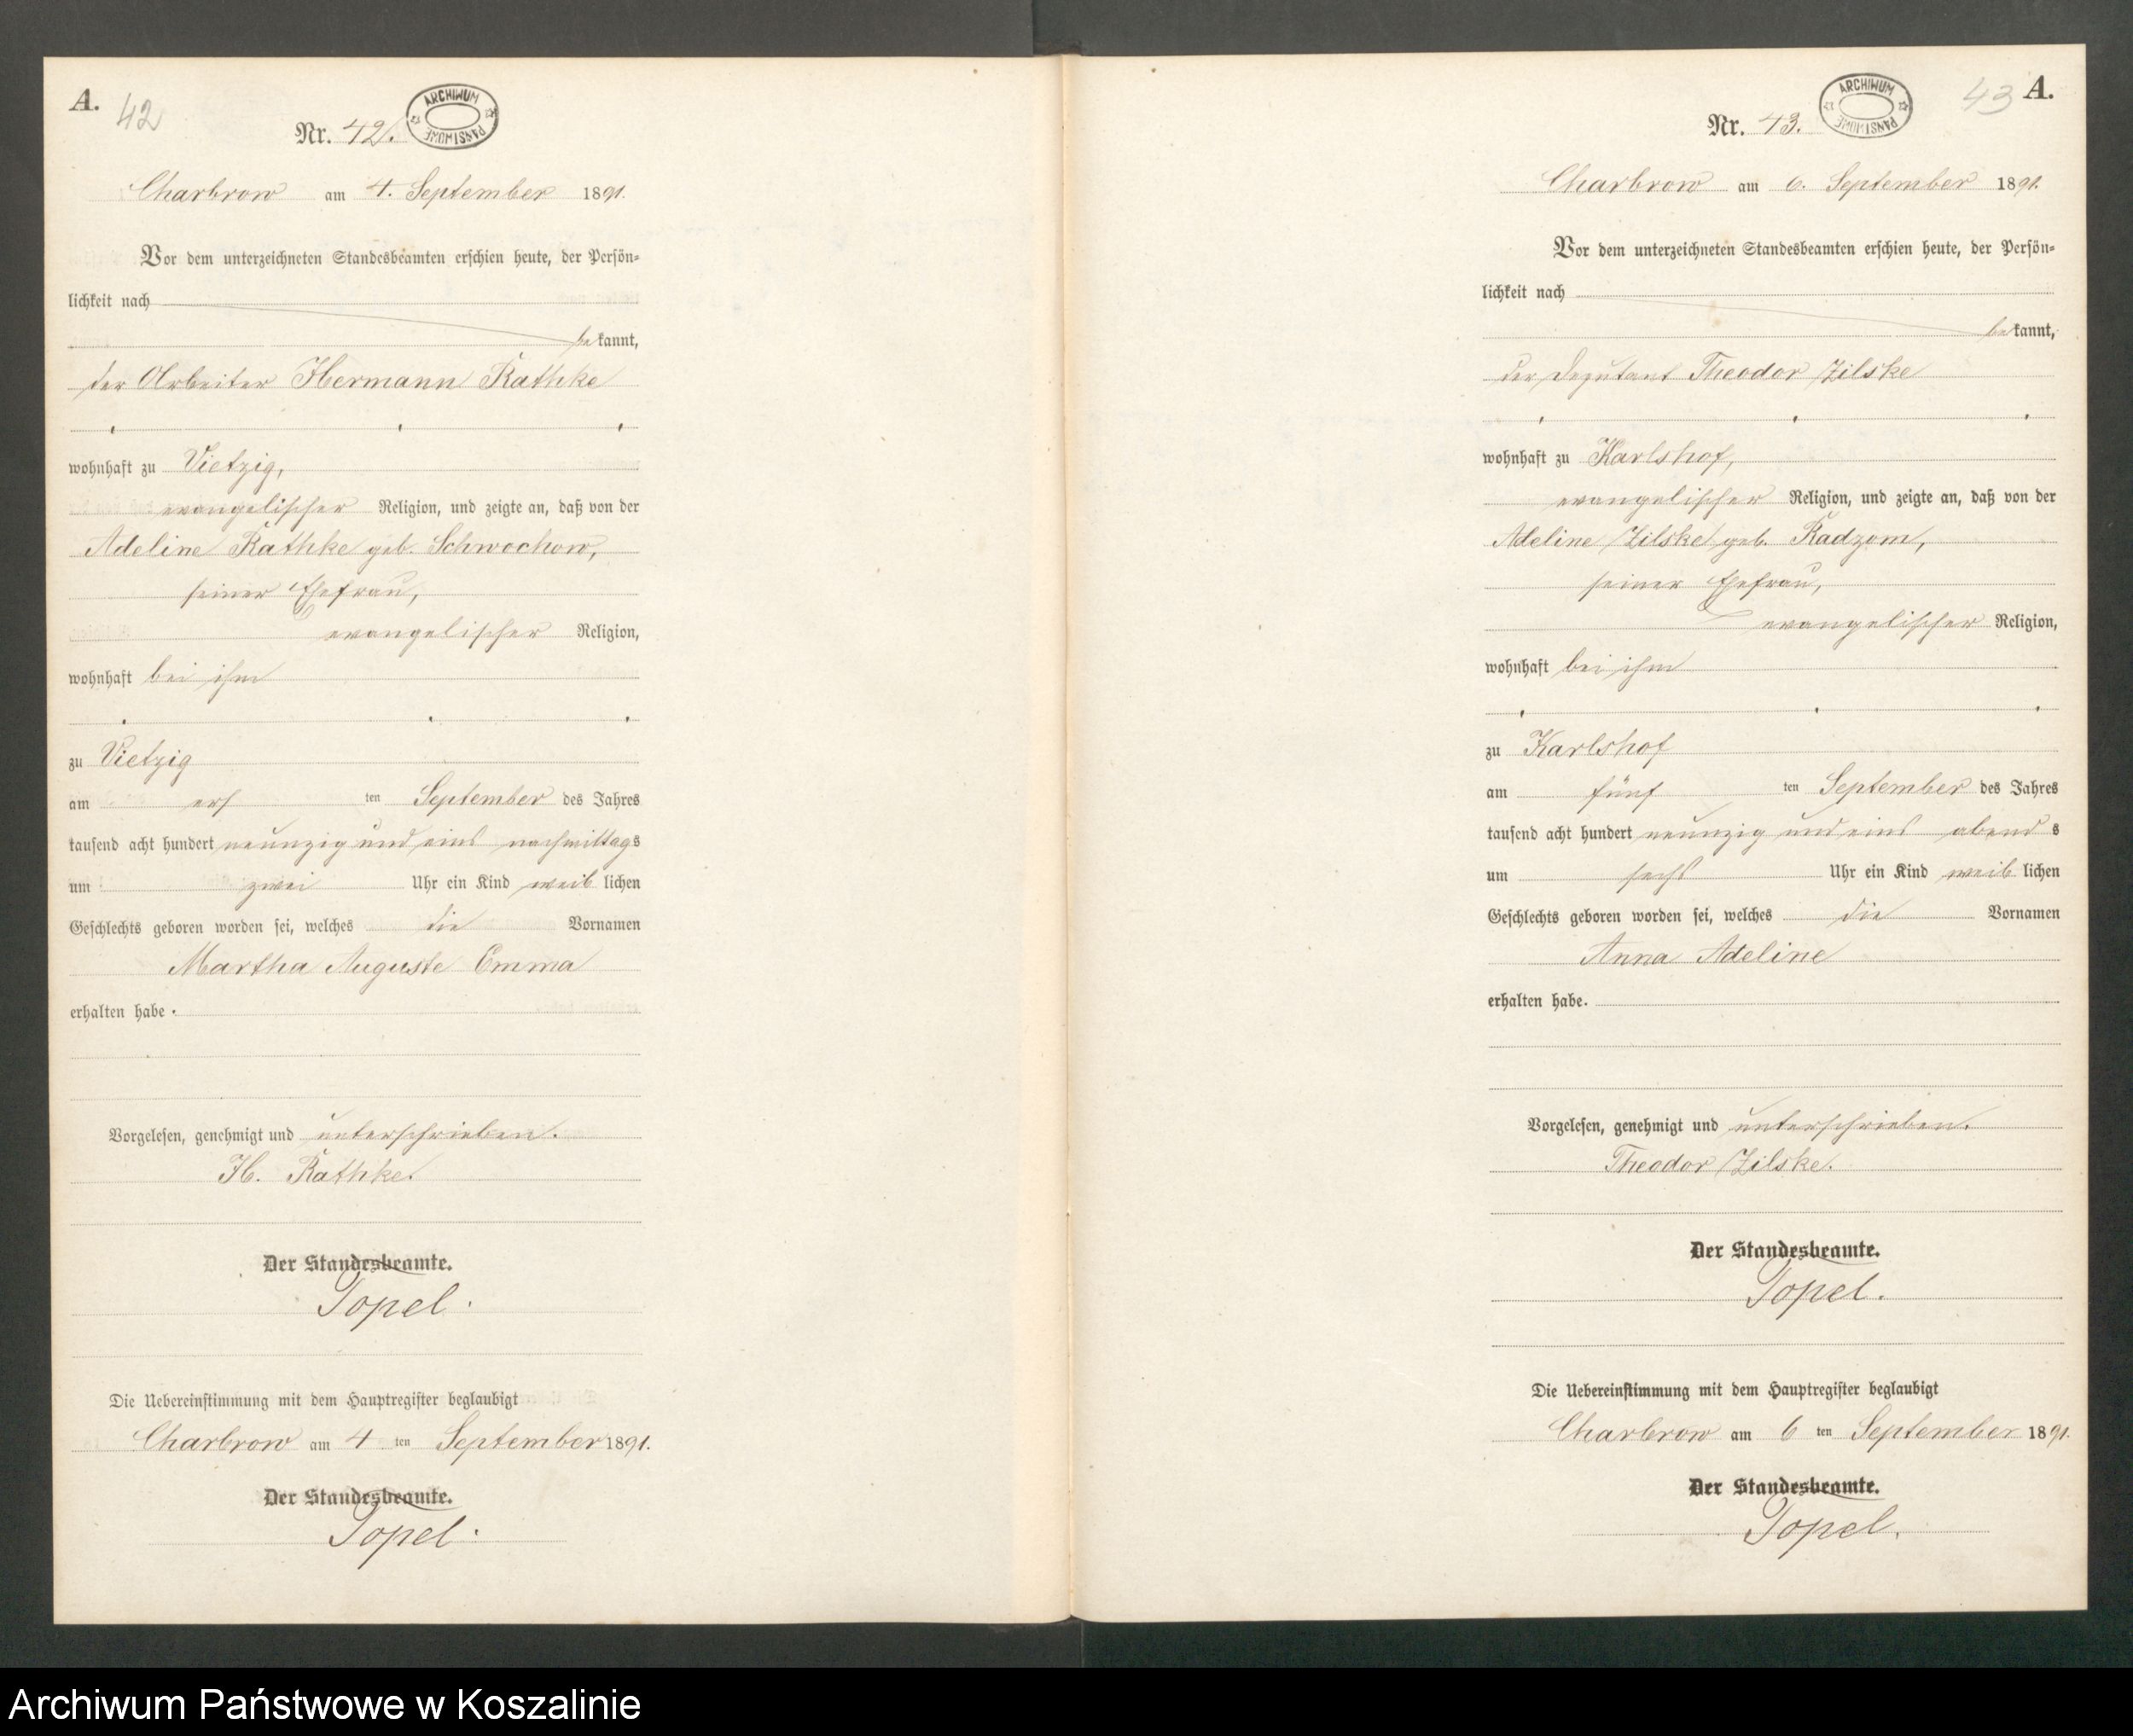 A.
42
Nr. 42.
ARCHIWUM PAŃSTWOWE
Charbrow am 4. September 1891.
Vor dem unterzeichneten Standesbeamten erschien heute, der Persön-
lichkeit nach
bekannt,
der Arbeiter Hermann Rathke
wohnhaft zu Vietzig,
evangelischer Religion, und zeigte an, daß von der
Adeline Rathke geb. Schwochow,
seiner Ehefrau,
evangelischer Religion,
wohnhaft bei ihm
zu Vietzig
am ersten September des Jahres
tausend acht hundert neunzig und eins nachmittags
um zwei Uhr ein Kind weiblichen
Geschlechts geboren worden sei, welches die Vornamen
Martha Auguste Emma
erhalten habe.
Vorgelesen, genehmigt und unterschrieben.
H. Rathke.
Der Standesbeamte.
Topel.
Die Uebereinstimmung mit dem Hauptregister beglaubigt
Charbrow am 4ten September 1891.
Der Standesbeamte.
Topel.
43
A.
Nr. 43.
ARCHIWUM PAŃSTWOWE
Charbrow am 6. September 1891.
Vor dem unterzeichneten Standesbeamten erschien heute, der Persön-
lichkeit nach
bekannt,
der Deputant Theodor Zilske
wohnhaft zu Karlshof,
evangelischer Religion, und zeigte an, daß von der
Adeline Zilske geb. Radzom,
seiner Ehefrau,
evangelischer Religion,
wohnhaft bei ihm
zu Karlshof
am fünften September des Jahres
tausend acht hundert neunzig und eins abends
um sechs Uhr ein Kind weiblichen
Geschlechts geboren worden sei, welches die Vornamen
Anna Adeline
erhalten habe.
Vorgelesen, genehmigt und unterschrieben.
Theodor Zilske.
Der Standesbeamte.
Topel.
Die Uebereinstimmung mit dem Hauptregister beglaubigt
Charbrow am 6ten September 1891.
Der Standesbeamte.
Topel.
Archiwum Państwowe w Koszalinie